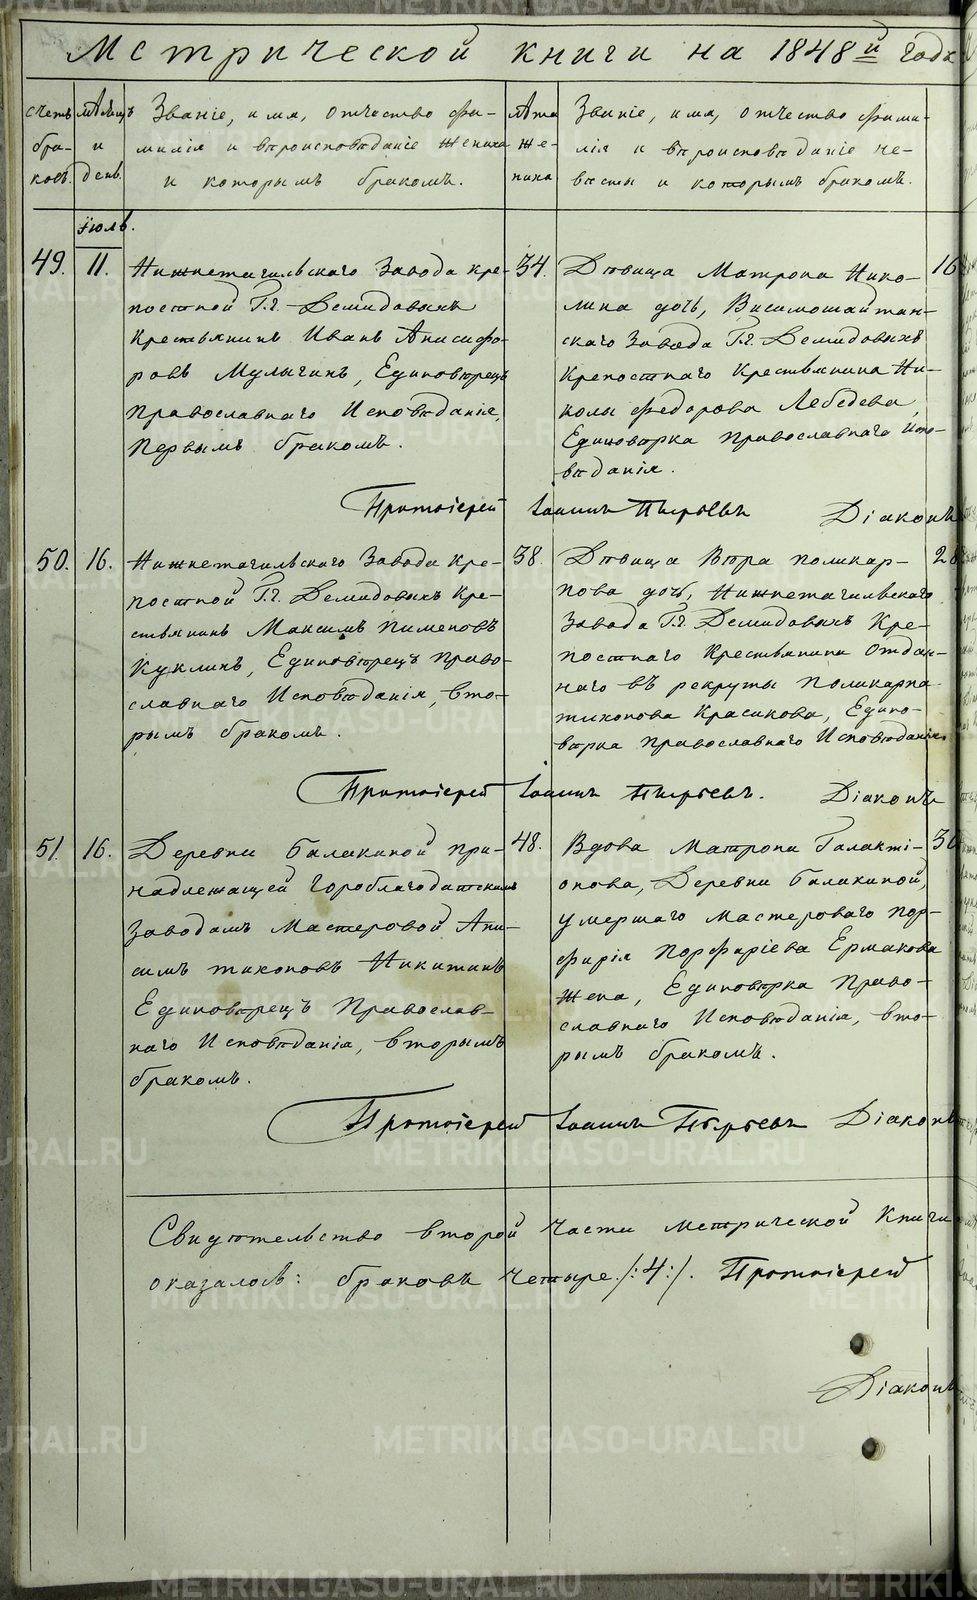 Метрической книги на 1848й года
счетъ браковъ.
мѣсяцъ и день.
Званіе, имя, отчество фамилія и вѣроисповѣданіе жениха и которымъ бракомъ.
лѣта жениха
Званіе, имя, отчество фамилія и вѣроисповѣданіе невѣсты и которымъ бракомъ.
Іюль.
49.
11.
Нижнетагильскаго Завода кре-
постной Г.г. Демидовыхъ
Крестьянинъ Иванъ Анисифо-
ровъ Мулыгинъ, Единовѣрецъ
Православнаго Исповѣданія,
первымъ бракомъ.
34.
Дѣвица Матрона Нико-
лина дочь, Висимошайтан-
скаго Завода Г.г. Демидовыхъ
Крепостнаго Крестьянина Ни-
колы Федорова Лебедева,
Единовѣрка православнаго испо-
вѣданія.
16
Протоіерей Іоаннъ Пырьевъ Діаконъ
50.
16.
Нижнетагильскаго Завода Кре-
постной Г.г. Демидовыхъ Кре-
стьянинъ Максимъ Пименовъ
Куклинъ, Единовѣрецъ Право-
славнаго Исповѣданія, вто-
рымъ бракомъ.
38.
Дѣвица Вѣра Поликар-
пова дочь, Нижнетагильскаго
Завода Г.г. Демидовыхъ Кре-
постнаго Крестьянина отдан-
наго въ рекруты Поликарпа
Тихонова Красикова, Едино-
вѣрка православнаго Исповѣданія
Протоіерей Іоаннъ Пырьевъ. Діаконъ
51.
16.
Деревни Балакиной при-
надлежащей Гороблагодатскимъ
заводамъ Мастеровой Ани-
симъ Тихоновъ Никитинъ
Единовѣрецъ Православ-
наго Исповѣданія, вторымъ
бракомъ.
48.
Вдова Матрона Галакті-
онова, Деревни Балакиной,
умершаго Мастероваго Пор-
фирія Порфиріева Ермакова
Жена, Единовѣрка Право-
славнаго Исповѣданія, вто-
рымъ бракомъ.
Протоіерей Іоаннъ Пырьевъ Діаконъ
Свидѣтельство второй части метрической Книги
оказалось: браковъ четыре /:4:/. Протоіерей
Діаконъ
METRIKI.GASO-URAL.RU